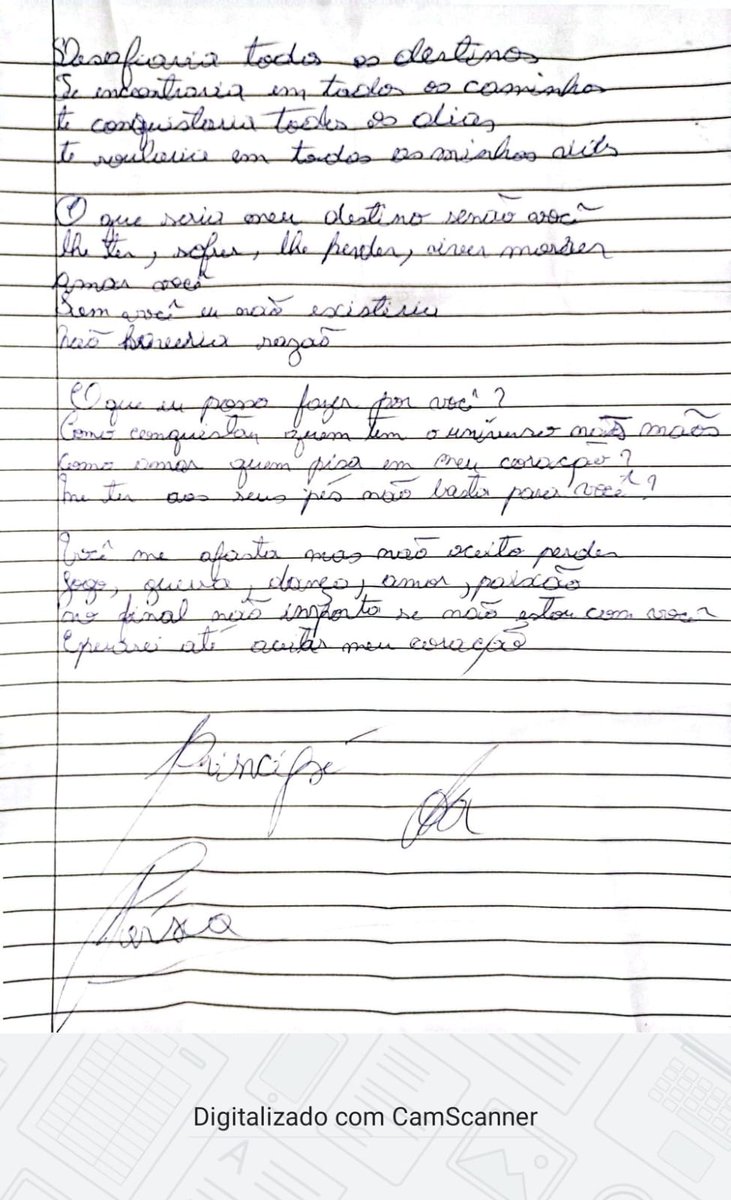 Desafiaria todos os destinos
Te encontraria em todos os caminhos
te conquistaria todos os dias
te em todas as minhas
O que seria meu destino senão você
lhe ter, sofrer, lhe perder, viver morrer
Amar você
Sem você eu não existiria
Não haveria razão
O que eu posso fazer por você?
Como conquistar quem tem o universo nas mãos
Como amar quem pisa em meu coração?
Me ter aos seus pés não basta para você?
Você me afasta mas não aceito perder
Jogo, guerra, dança, amor, paixão
no final não importa se não estou com você
Esperarei até aceitar meu coração
Príncipe
da
Pérsia
Digitalizado com CamScanner